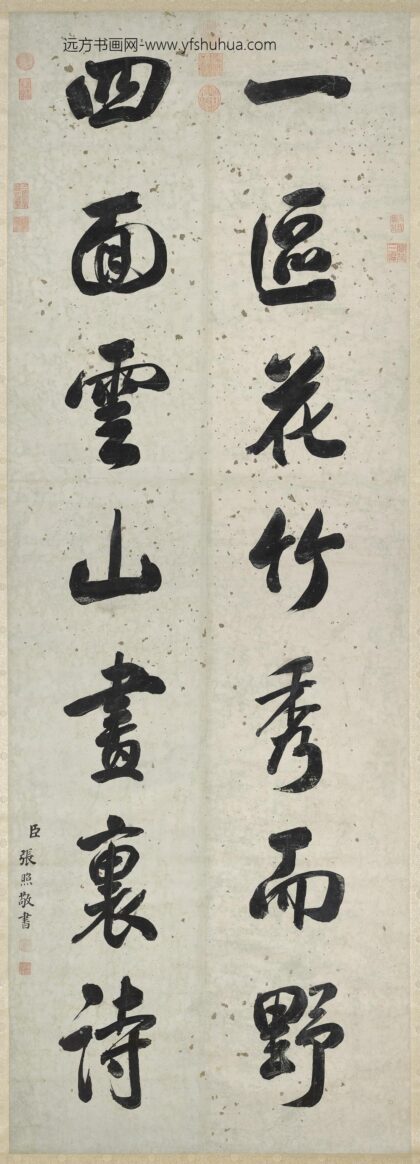 远方书画网-www.yfshuhua.com
一區花竹秀而野
四面雲山畫裏詩
臣張照敬書